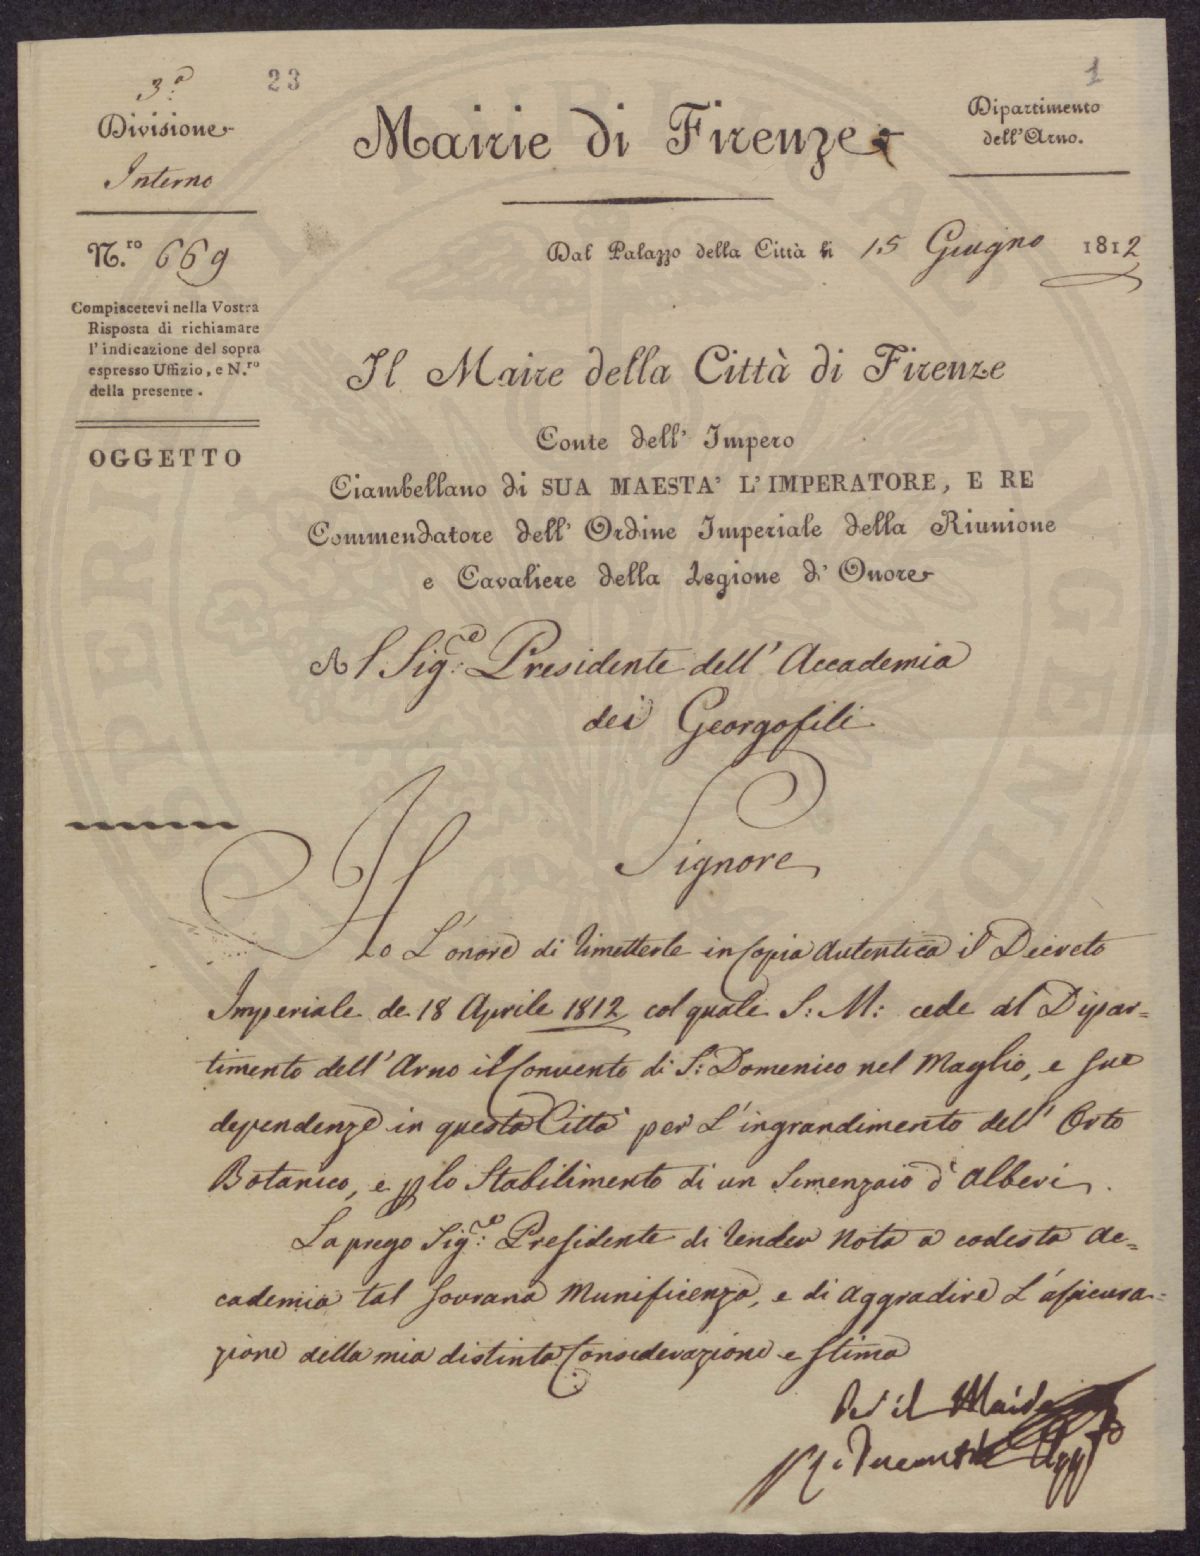 3.a
23
1
Divisione
Interno
Mairie di Firenze
Dipartimento
dell'Arno.
N.ro 669
Dal Palazzo della Città li 15 Giugno 1812
Compiacetevi nella Vostra
Risposta di richiamare
l'indicazione del sopra
espresso Uffizio, e N.ro
della presente.
OGGETTO
Il Maire della Città di Firenze
Conte dell' Impero
Ciambellano di SUA MAESTA' L'IMPERATORE, E RE
Commendatore dell' Ordine Imperiale della Riunione
e Cavaliere della Legione d' Onore
Al Sig.re Presidente dell' Accademia
dei Georgofili
Signore
Ho L'onore di rimetterle in Copia autentica il Decreto
Imperiale de 18 Aprile 1812 col quale S: M: cede al Dipar=
timento dell' Arno il Convento di S: Domenico nel Maglio, e sue
dependenze in questa Città per L'ingrandimento dell' Orto
Botanico, e p lo Stabilimento di un Semenzaio d'alberi.
La prego Sig.re Presidente di render nota a codesta Ac=
cademia tal sovrana Munificenza, e di aggradire L'assicura=
zione della mia distinta Considerazione e stima
Per il Maire
Agg.to